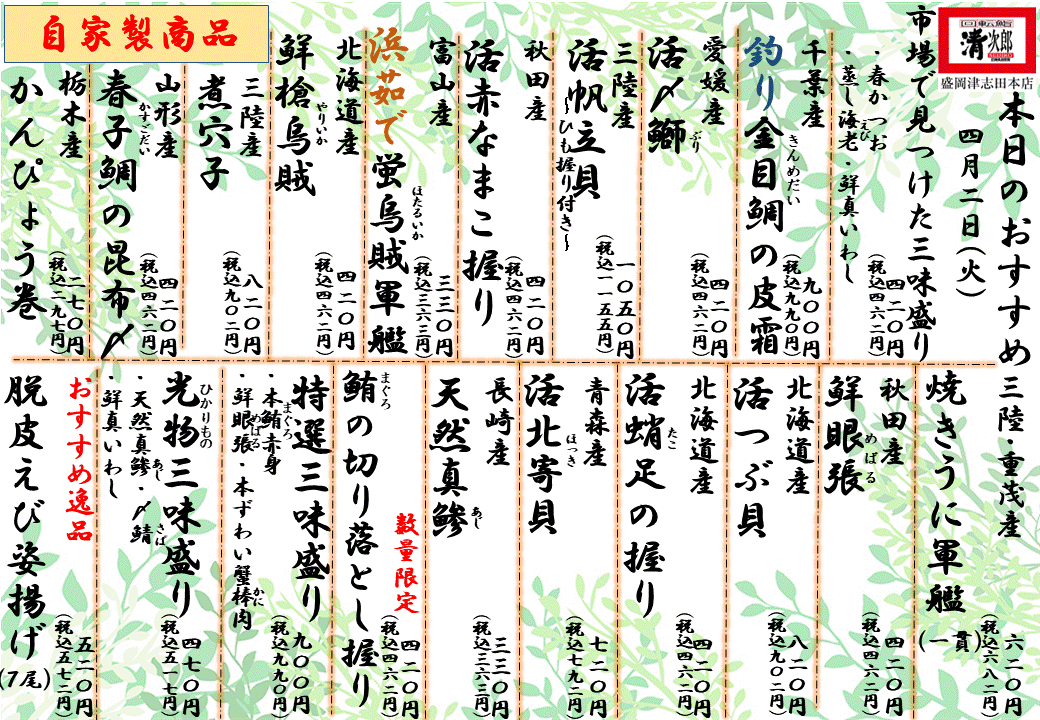 回転鮨
清次郎
盛岡津志田本店
本日のおすすめ
四月二日(火)
市場で見つけた三味盛り
・春かつお
・蒸し海老・鮮真いわし
えび
四二〇円
(税込四六二円)
千葉産
釣り金目鯛の皮霜
きんめだい
九〇〇円
(税込九九〇円)
愛媛産
活〆鰤
ぶり
四二〇円
(税込四六二円)
三陸産
活帆立貝
~ひも握り付き~
一〇五〇円
(税込一一五五円)
秋田産
活赤なまこ握り
四二〇円
(税込四六二円)
富山産
浜茹で蛍烏賊軍艦
ほたるいか
三三〇円
(税込三六三円)
北海道産
鮮槍烏賊
やりいか
四二〇円
(税込四六二円)
三陸産
煮穴子
八二〇円
(税込九〇二円)
自家製商品
山形産
春子鯛の昆布〆
かすごだい
四二〇円
(税込四六二円)
栃木産
かんぴょう巻
二七〇円
(税込二九七円)
三陸・重茂産
焼きうに軍艦
(一貫)
六二〇円
(税込六八二円)
秋田産
鮮眼張
めばる
四二〇円
(税込四六二円)
北海道産
活つぶ貝
八二〇円
(税込九〇二円)
北海道産
活蛸足の握り
たこ
四二〇円
(税込四六二円)
青森産
活北寄貝
ほっき
七二〇円
(税込七九二円)
長崎産
天然真鯵
あじ
三三〇円
(税込三六三円)
数量限定
鮪の切り落とし握り
まぐろ
四二〇円
(税込四六二円)
特選三味盛り
・本鮪赤身
まぐろ
・鮮眼張・本ずわい蟹棒肉
めばる
かに
九〇〇円
(税込九九〇円)
光物三味盛り
ひかりもの
・天然真鯵・〆鯖
あじ
さば
・鮮真いわし
四七〇円
(税込五一七円)
おすすめ逸品
脱皮えび姿揚げ
(7尾)
五二〇円
(税込五七二円)